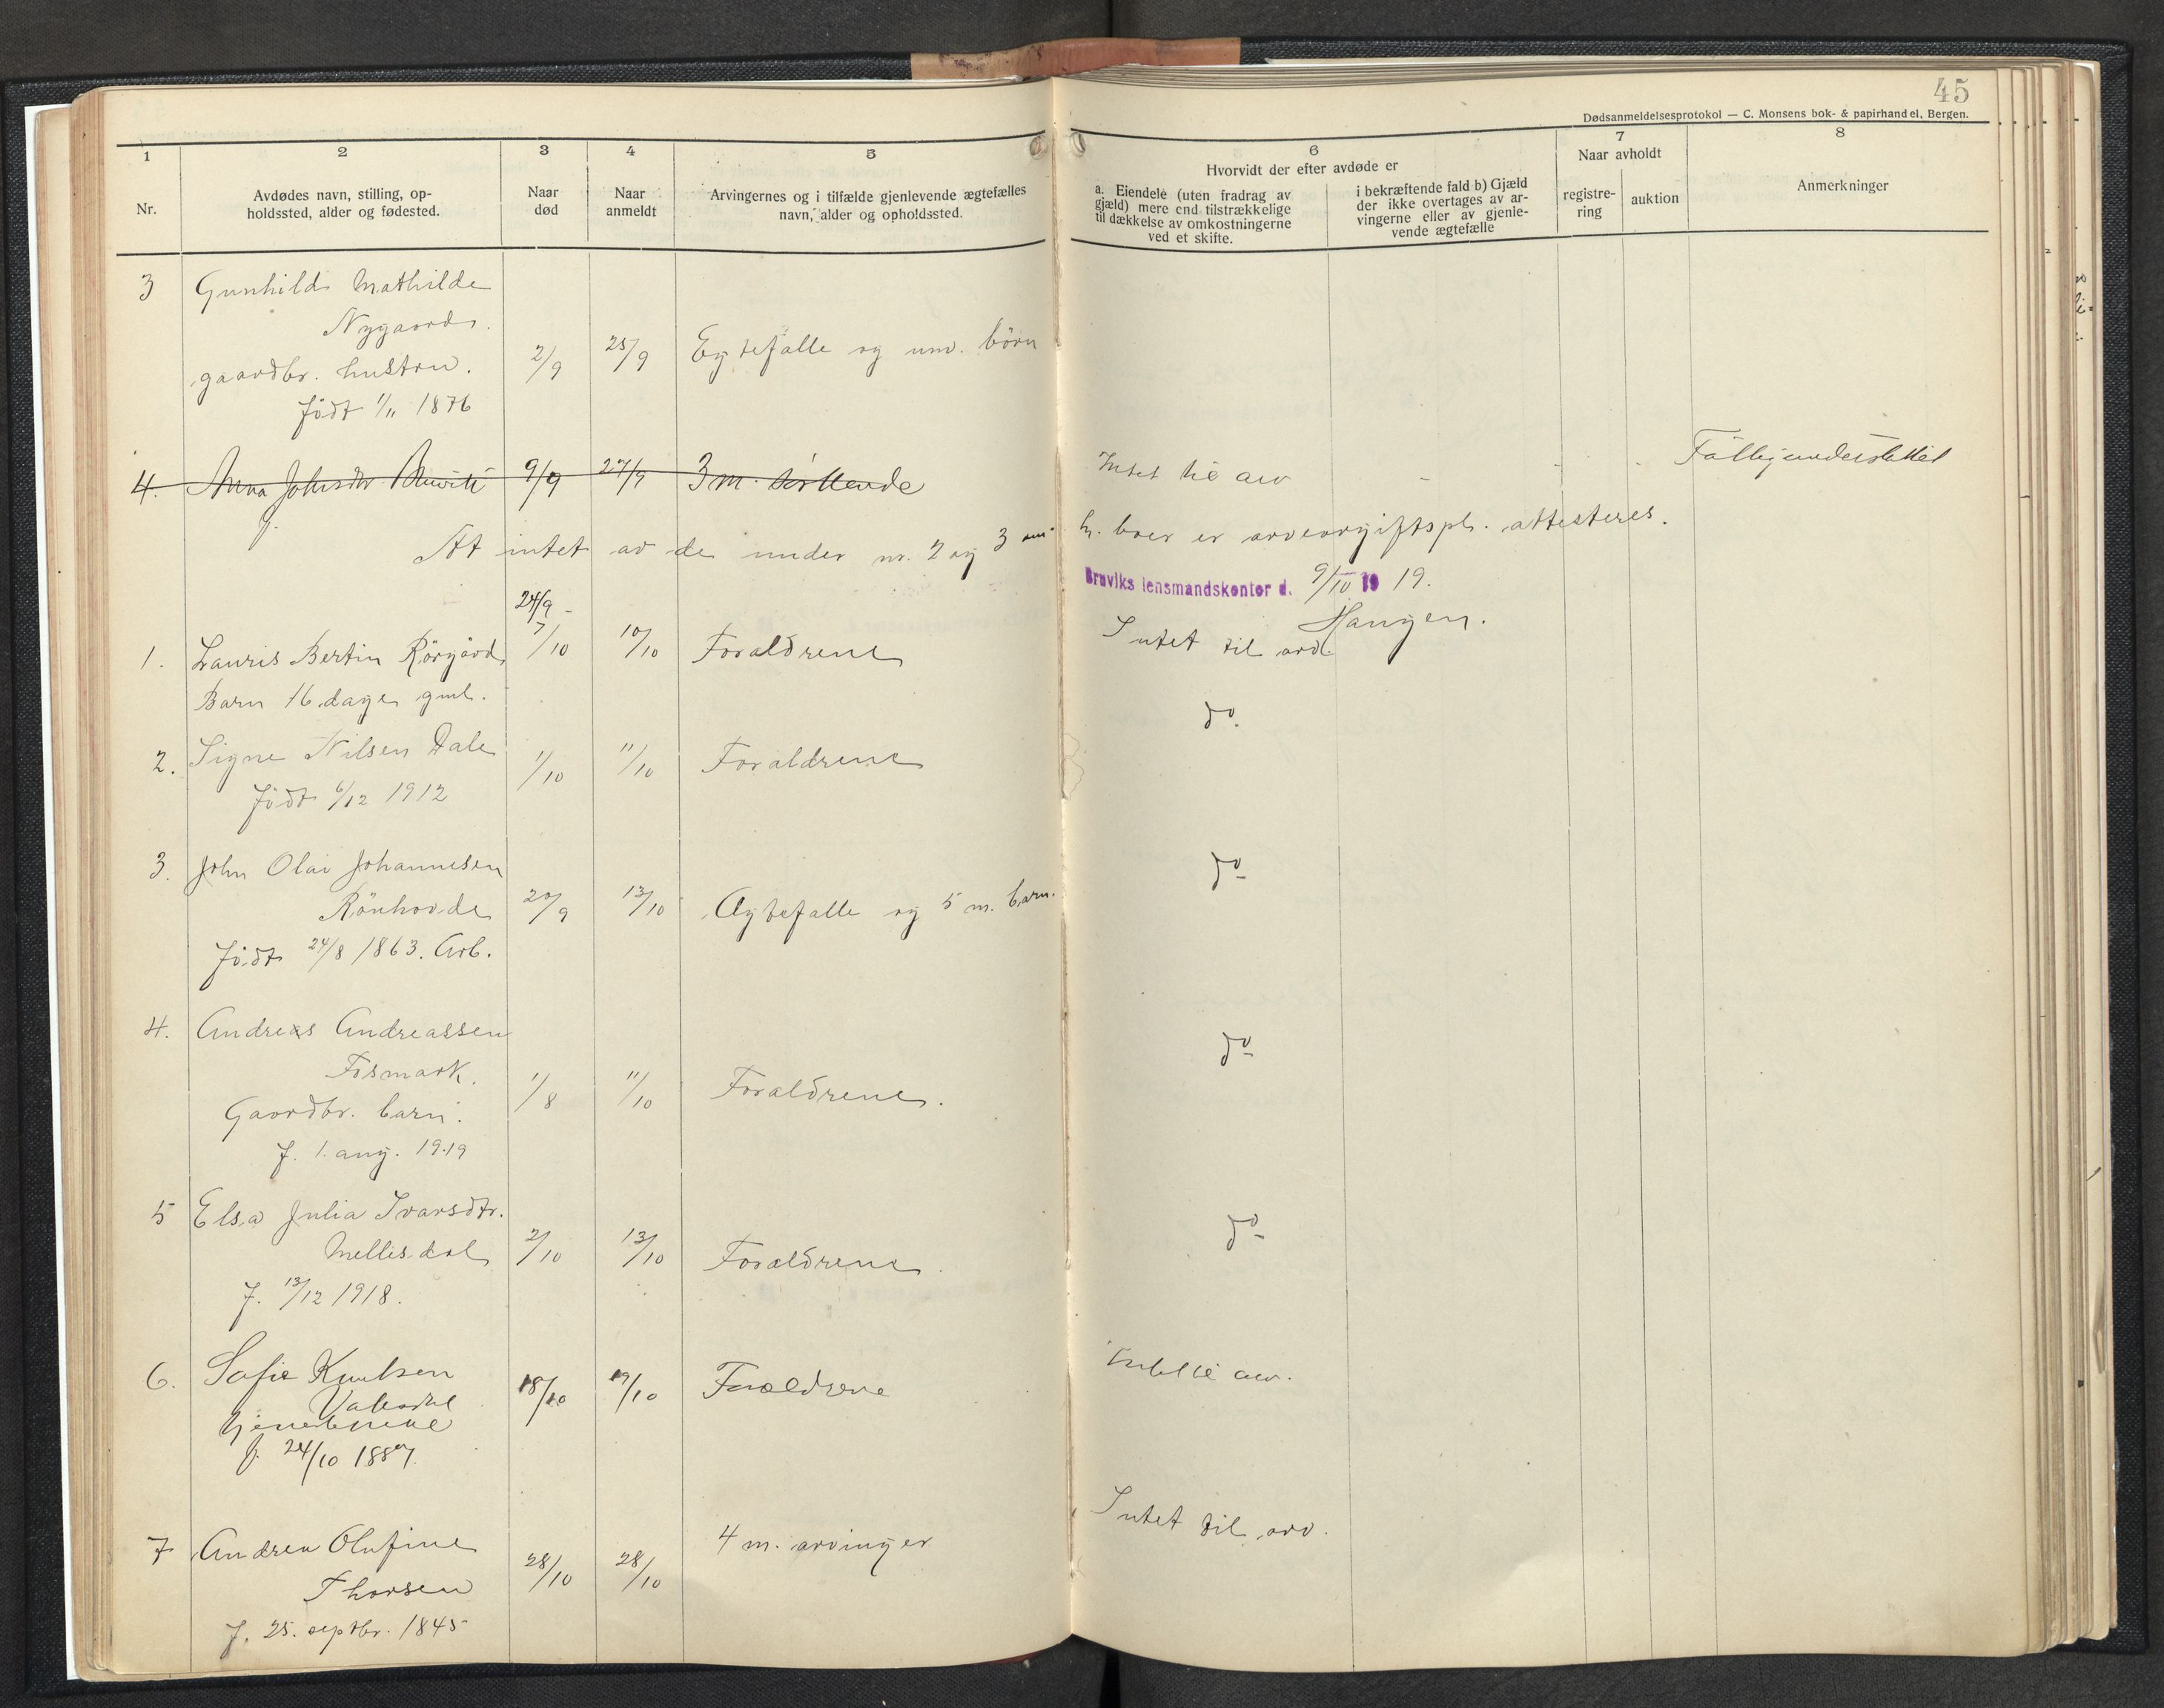 45
Dødsanmeldelsesprotokol — C. Monsens bok- & papirhandel, Bergen.
1
Nr.
2
Avdødes navn, stilling, op-
holdssted, alder og fødested.
3
Naar
død
4
Naar
anmeldt
5
Arvingernes og i tilfælde gjenlevende ægtefælles
navn, alder og opholdssted.
6
Hvorvidt der efter avdøde er
a. Eiendele (uten fradrag av
gjæld) mere end tilstrækkelige
til dækkelse av omkostningerne
ved et skifte.
i bekræftende fald b) Gjæld
der ikke overtages av ar-
vingerne eller av gjenle-
vende ægtefælle
7
Naar avholdt
registre-
ring
auktion
8
Anmerkninger
3 Gunhild Mathilde
Nygaard.
gaardbr. hustru. 2/9 25/9 Egtefalle og umd. börn
Född 1/11 1876
4. Anna Johsdtr 9/9 27/9 3 m. Intet til arv Fattigunderstöttet
At intet av de under nr. 2 og 3 boer er arveavgiftspl. attesteres.
Bruviks lensmandskontor d. 9/10 19 19.
Haugen.
24/9 -
1. Lauris Bertin Rörgård 7/10 10/10 Foraldrene Intet til arv
Barn 16 dage gml.
2. Signe Nilsen Dale 1/10 11/10 Foraldrene do
Födt 6/12 1912
3. John Olai Johannesen
Rönhovde 20/9 13/10 Ægtefalle og 5 m. barn. do
Födt 24/8 1863. Arb.
4. Andreas Andreassen
Fosmark. 1/8 11/10 Foraldrene. do
Gaardbr. barn.
f. 1. aug. 1919
5 Elsa Julia Ivarsdtr.
Mellesdal 2/10 13/10 Foraldrene. do
f. 13/12 1918.
6. Sofie Knutsen
18/10 19/10 Foraldrene Intet til arv.
f. 24/10 1887.
7 Andrea Olufine
Thorsen 28/10 28/10 4 m. arvinger Intet til arv.
f. 25. septbr. 1845